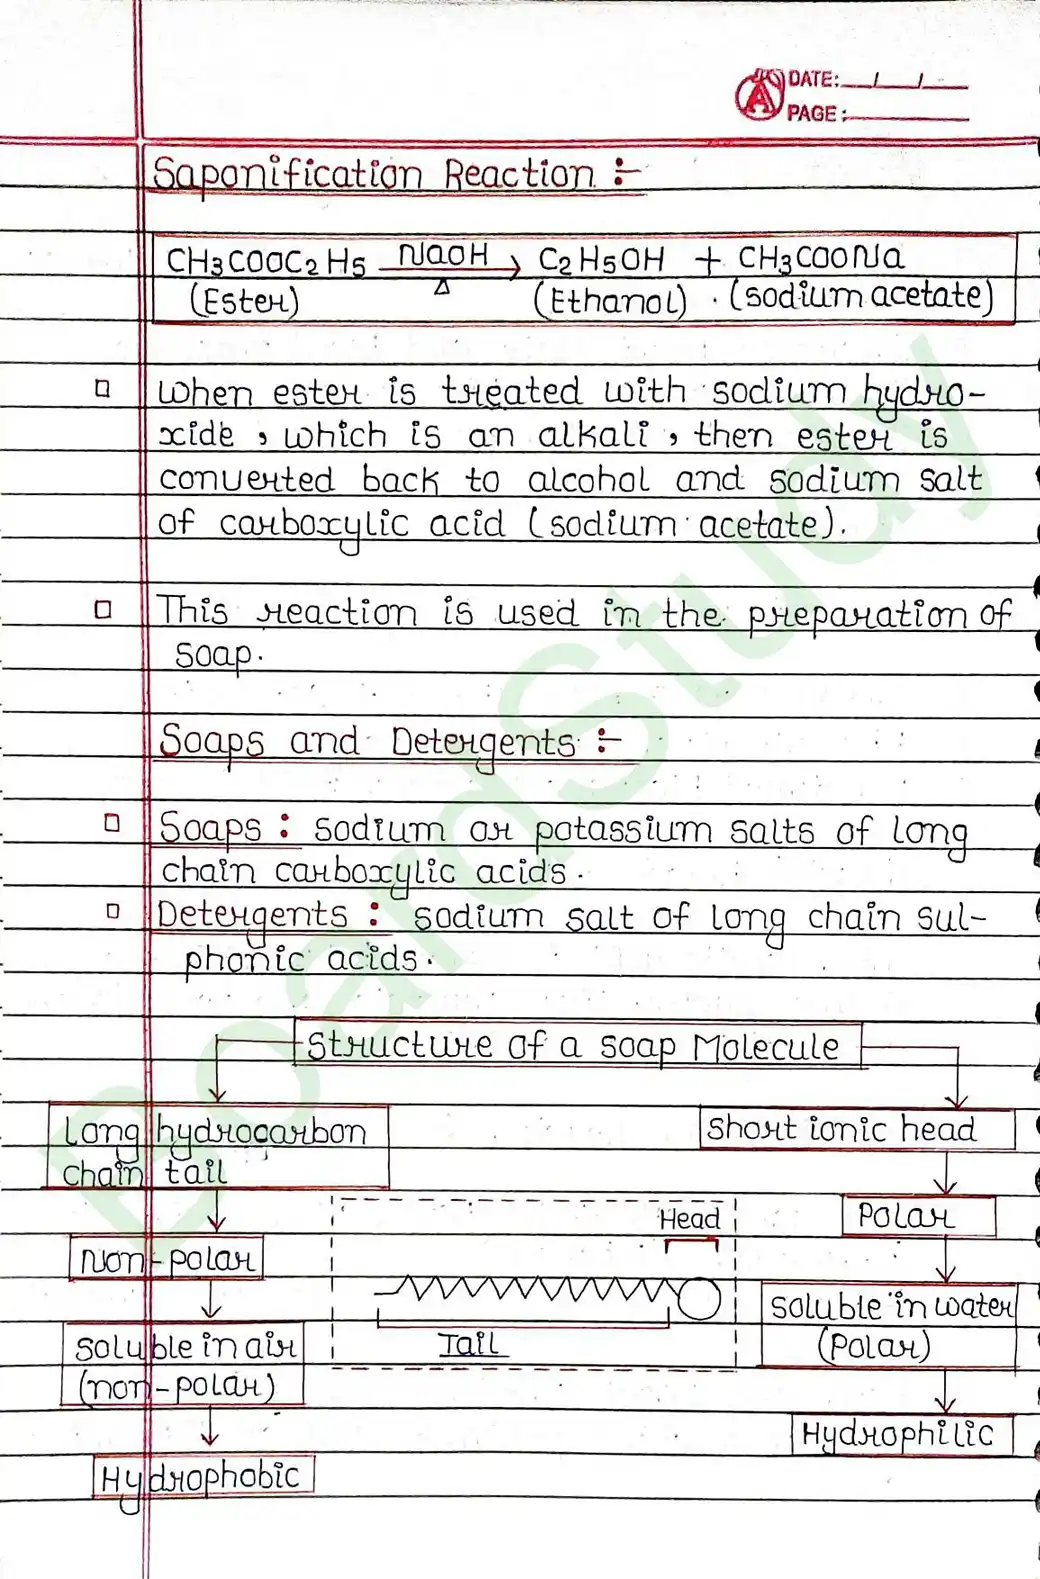 DATE: __/__/__
PAGE: ______
Saponification Reaction :-
CH3COOC2H5 NaOH → C2H5OH + CH3COONa
(Ester) Δ (Ethanol) . (sodium acetate)
When ester is treated with sodium hydro-
xide , which is an alkali , then ester is
converted back to alcohol and sodium salt
of carboxylic acid (sodium acetate).
This reaction is used in the preparation of
soap.
Soaps and Detergents :-
Soaps : sodium or potassium salts of long
chain carboxylic acids.
Detergents : sodium salt of long chain sul-
phonic acids.
Structure of a soap Molecule
Long hydrocarbon
chain tail
short ionic head
Head
Polar
Non-polar
Tail
soluble in water
(Polar)
soluble in air
(non-polar)
Hydrophilic
Hydrophobic
BoardStudy